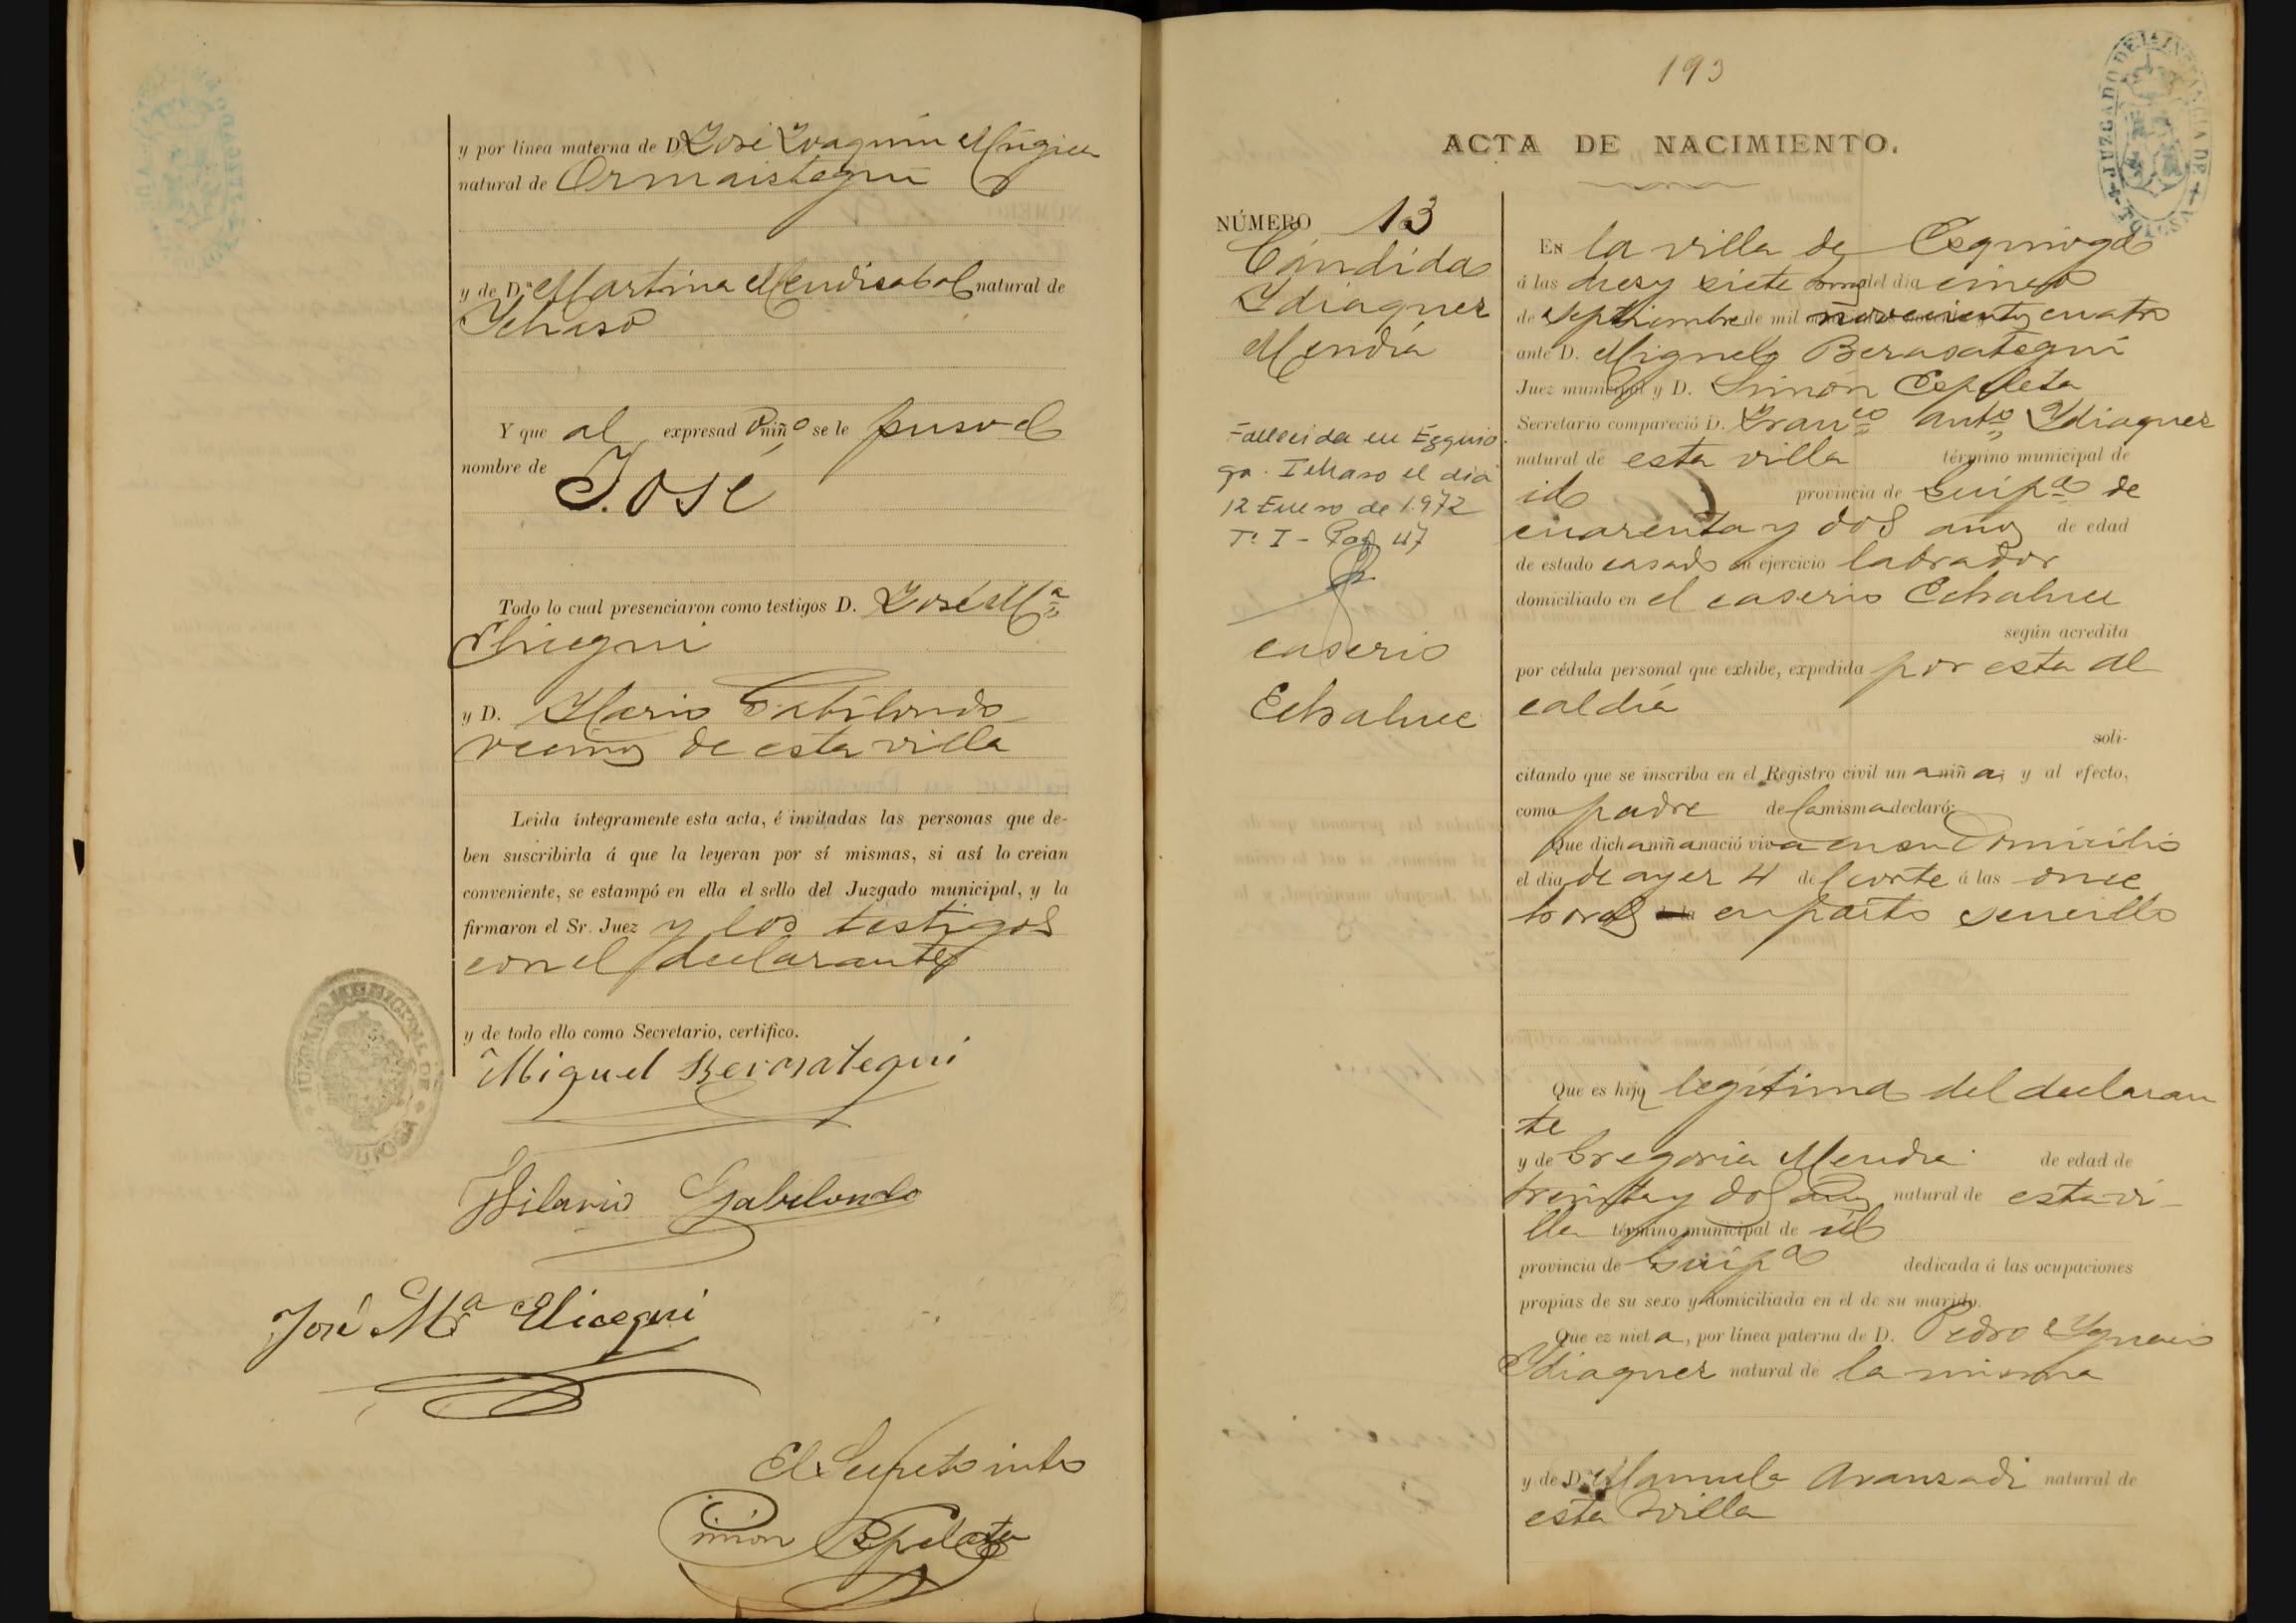 y por línea materna de D. José Joaquín Múgica
natural de Ormaistegui
y de D.ª Martina Mendisabal natural de
Ichaso
Y que al expresado niño se le puso el
nombre de José
Todo lo cual presenciaron como testigos D. José M.ª
Elicegui
y D. Ilario Gabilondo
vecinos de esta villa
Leida íntegramente esta acta, é invitadas las personas que de-
ben suscribirla á que la leyeran por sí mismas, si así lo creian
conveniente, se estampó en ella el sello del Juzgado municipal, y la
firmaron el Sr. Juez y los testigos
con el declarante
y de todo ello como Secretario, certifico.
Miguel Berasategui
Hilario Gabilondo
José Mª Elicegui
El Secreto into
Simon Espeleta
193
JUZGADO DE 1ª INSTANCIA DE TOLOSA
ACTA DE NACIMIENTO.
NÚMERO 13
Cándida
Ydiaquez
Mendia
Fallecida en Ezquio
ga-Ichaso el dia
12 Enero de 1.972
Tº I - Pag 47
caserio
Echaluce
En la villa de Esquioga
á las dies y siete horas del dia cinco
de Septiembre de mil novecientos cuatro
ante D. Miguel Berasategui
Juez municipal y D. Simón Espeleta
Secretario compareció D. Franco Anto Ydiaquez
natural de esta villa término municipal de
id provincia de Guipª de
cuarenta y dos años de edad
de estado casado su ejercicio labrador
domiciliado en el caserio Echaluce
según acredita
por cédula personal que exhibe, expedida por esta al
caldía
soli-
citando que se inscriba en el Registro civil una niña; y al efecto,
como padre de la misma declaró:
Que dicha niña nació viva en su domicilio
el dia de ayer 4 del corte á las once
horas en parto sencillo
Que es hija legítima del declaran
te
y de Gregoria Mendia de edad de
treinta y dos años natural de esta vi-
lla término municipal de id
provincia de Guipª dedicada á las ocupaciones
propias de su sexo y domiciliada en el de su marido.
Que es nieta, por línea paterna de D. Pedro Ygnacio
Ydiaquez natural de la misma
y de D.ª Manuela Aranzadi natural de
esta villa